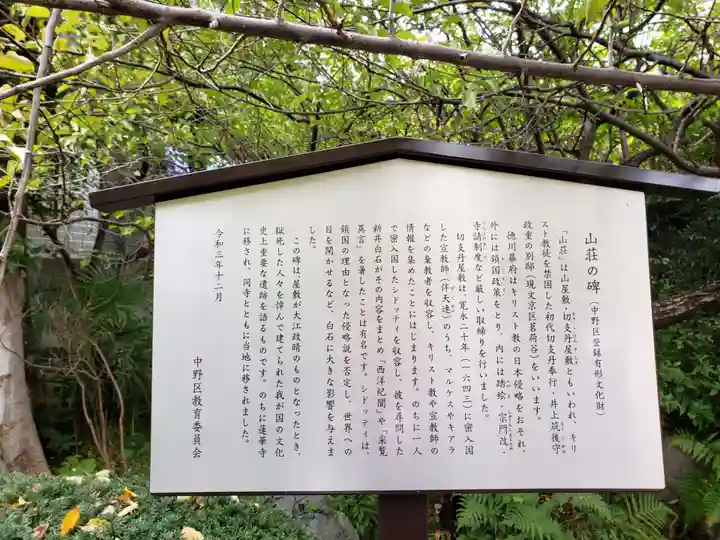 山荘の碑(中野区登録有形文化財)
「山荘」は山屋敷・切支丹屋敷ともいわれ、キリ
スト教徒を禁固した初代切支丹奉行・井上筑後守
政重の別邸(現文京区茗荷谷)をいいます。
徳川幕府はキリスト教の日本侵略をおそれ、
外には鎖国政策をとり、内には踏絵・宗門改・
寺請制度など厳しい取締りを行いました。
切支丹屋敷は、寛永二十年(一六四三)に密入国
した宣教師(伴天連)のうち、マルケスやキアラ
などの棄教者を収容し、キリスト教や宣教師の
情報を集めたことにはじまります。のちに一人
で密入国したシドッティを収容し、彼を尋問した
新井白石がその内容をまとめ「西洋紀聞」や「采覧
異言」を著したことは有名です。シドッティは、
鎖国の理由となった侵略説を否定し、世界への
目を開かせるなど、白石に大きな影響を与えま
した。
この碑は、屋敷が大江政晴のものとなったとき、
獄死した人々を悼んで建てられた我が国の文化
史上重要な遺跡を語るものです。のちに蓮華寺
に移され、同寺とともに当地に移されました。
令和三年十二月
中野区教育委員会